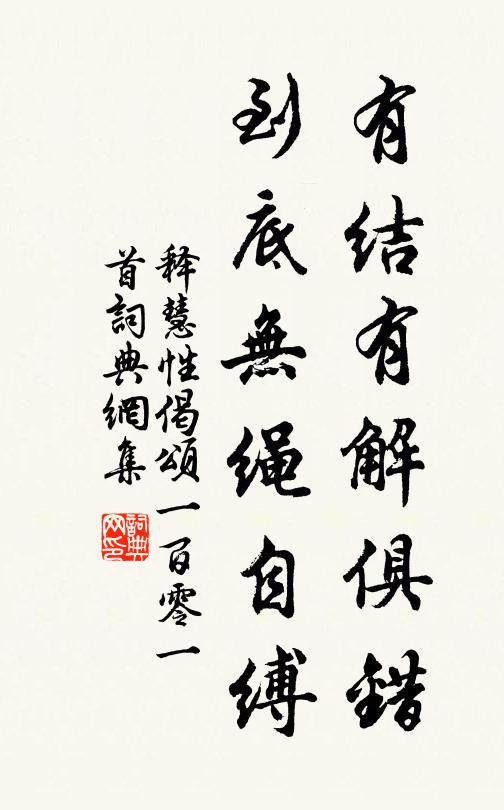 有结有解俱错
到底無绳自缚
释慧性偈頌一百零一
首詞典網集
詞典
网印